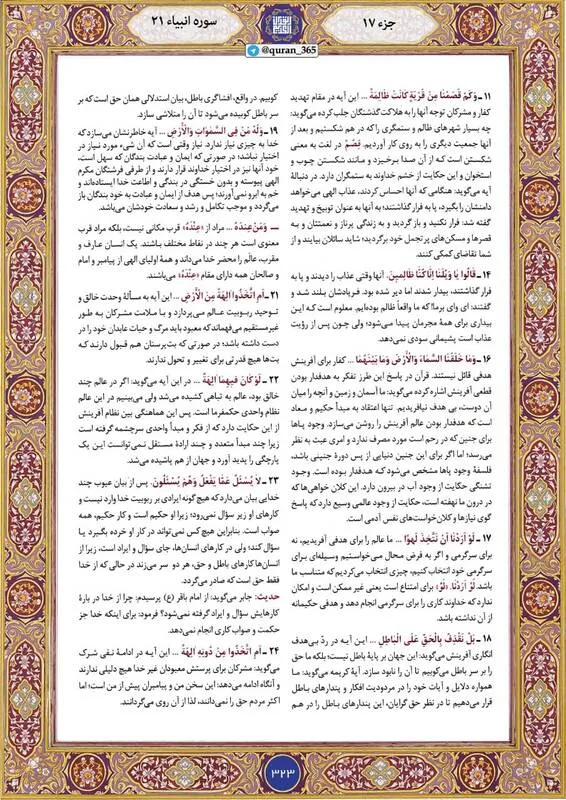 جزء ۱۷
سوره انبیاء ۲۱
@quran_365
۱۱ـ وَكَمْ قَصَمْنَا مِنْ قَرْيَةٍ كَانَتْ ظَالِمَةً ... این آیه در مقام تهدید
کفار و مشرکان توجه آنها را به هلاکت گذشتگان جلب کرده می‌گوید:
چه بسیار شهرهای ظالم و ستمگری را که در هم شکستیم و بعد از
آنها جمعیت دیگری را به روی کار آوردیم. قِصْم در لغت به معنی
شکستن است که از آن صدا برخیزد و مانند شکستن چوب و
استخوان و این حکایت از خشم خداوند به ستمگران دارد. در دنبالهٔ
آیه می‌گوید: هنگامی که آنها احساس کردند، عذاب الهی می‌خواهد
دامنشان را بگیرد، پا به فرار گذاشتند؛ به آنها به عنوان توبیخ و تهدید
گفته شد: فرار نکنید و باز گردید و به زندگی پرناز و نعمتتان و به
قصرها و مسکن‌های پر تجمل خود برگردید؛ شاید سائلان بیایند و از
شما تقاضای کمکی کنند.
۱۴ـ قَالُوا يَا وَيْلَنَا إِنَّا كُنَّا ظَالِمِينَ. آنها وقتی عذاب را دیدند و پا به
فرار گذاشتند، بیدار شدند اما دیر شده بود. فریادشان بلند شد و
گفتند: ای وای برما! که ما واقعاً ظالم بوده‌ایم. معلوم است که این
بیداری برای همهٔ مجرمان پیدا می‌شود؛ ولی چون پس از رؤیت
عذاب است پشیمانی سودی نمی‌دهد.
۱۶ـ وَمَا خَلَقْنَا السَّمَاءَ وَالْأَرْضَ وَمَا بَيْنَهُمَا ... کفار برای آفرینش
هدفی قائل نیستند. قرآن در پاسخ این طرز تفکر به هدفدار بودن
قطعی آفرینش اشاره کرده می‌گوید: ما آسمان و زمین و آنچه را میان
آن دوست، بی هدف نیافریدیم. تنها اعتقاد به مبدأ حکیم و معاد
است که هدفدار بودن عالم آفرینش را روشن می‌سازد. وجود پاها
برای جنین که در رحم است مورد مصرف ندارد و امری عبث به نظر
می‌رسد؛ اما اگر برای این جنین دنیایی از پس دورهٔ جنینی باشد،
فلسفهٔ وجود پاها مشخص می‌شود کـه هدفدار بوده است. وجود
تشنگی حکایت از وجود آب در بیرون دارد. این کلان خواهی‌ها که
در درون ما نهفته است، حکایت از وجود عالمی وسیع دارد که پاسخ
گوی نیازها و کلان‌خواست‌های نفس آدمی است.
۱۷ـ لَوْ أَرَدْنَا أَنْ نَتَّخِذَ لَهْوًا ... ما عالم را برای هدفی آفریدیم، نه
برای سرگرمی و اگر به فرض محال می‌خواستیم وسیله‌ای برای
سرگرمی خود انتخاب کنیم، چیزی انتخاب می‌کردیم که متناسب ما
باشد. لَوْ أَرَدْنَا. «لَوْ» برای امتناع است یعنی غیر ممکن است و امکان
ندارد که خداوند کاری را برای سرگرمی انجام دهد و هدفی حکیمانه
از آن نداشته باشد.
۱۸ـ بَلْ نَقْذِفُ بِالْحَقِّ عَلَى الْبَاطِلِ ... این آیه در ردّ بی‌هدف
انگاری آفرینش می‌گوید: این جهان بر پایهٔ باطل نیست؛ بلکه ما حق
را بر سر باطل می‌کوبیم تا آن را نابود سازد. آیهٔ کریمه می‌گوید: ما
همواره دلایل و آیات خود را در مردودیت افکار و پندارهای باطل
قرار می‌دهیم تا در نظر حق گرایان، این پندارهای باطل را در هم
کوبیم. در واقع، افشاگری باطل، بیان استدلالی همان حق است که بر
سر باطل کوبیده می‌شود تا آن را متلاشی سازد.
۱۹ـ وَلَهُ مَنْ فِي السَّمَوَاتِ وَالْأَرْضِ ... آیه خاطرنشان می‌سازد که
خدا به چیزی نیاز ندارد. نیاز وقتی است که آن شیء مورد نیاز در
اختیار نباشد؛ در صورتی که ایمان و عبادت بندگان که سهل است،
خود آنها نیز در اختیار خداوند قرار دارند و از طرفی فرشتگان مکرم
الهی پیوسته و بدون خستگی در بندگی و اطاعت خدا ایستاده‌اند و
خم به ابرو نمی‌آورند؛ پس هدف از ایمان و عبادت به خود بندگان باز
می‌گردد و موجب تکامل و رشد و سعادت خودشان می‌باشد.
ـــ وَمَنْ عِنْدَهُ ... مراد از «عِنْدَهُ» قرب مکانی نیست، بلکه مراد قرب
معنوی است هر چند در نقاط مختلف باشند. یک انسان عارف و
مقرب، عالَم را محضر خدا می‌داند و همهٔ اولیای الهی از پیامبر و امام
و صالحان همه دارای مقام «عِنْدَهُ» می‌باشند.
۲۱ـ أَمِ اتَّخَذُوا آلِهَةً مِنَ الْأَرْضِ ... این آیه به مسألهٔ وحدت خالق و
توحید ربوبیت عالم می‌پردازد و با ملامت مشرکان به طور
غیرمستقیم می‌فهماند که معبود باید مرگ و حیات عابدان خود را در
دست داشته باشد؛ در صورتی که بت‌پرستان هم قبول دارند کـه
بت‌ها هیچ قدرتی برای تغییر و تحول ندارند.
۲۲ـ لَوْ كَانَ فِيهِمَا آلِهَةٌ ... در این آیه می‌گوید: اگر در عالم چند
خالق بود، عالم به تباهی کشیده می‌شد ولی می‌بینیم در این عالم
نظام واحدی حکمفرما است. پس این هماهنگی بین نظام آفرینش
از این حکایت دارد که از فکر و مبدأ واحدی سرچشمه گرفته است
زیرا چند مبدأ متعدد و چند ارادهٔ مستقل نمی‌توانست این یک
پارچگی را پدید آورد و جهان از هم پاشیده می‌شد.
۲۳ـ لَا يُسْئَلُ عَمَّا يَفْعَلُ وَهُمْ يُسْئَلُونَ. پس از بیان عیوب چند
خدایی بیان می‌دارد که هیچ گونه ایرادی بر ربوبیت خدا وارد نیست و
کارهای او زیر سؤال نمی‌رود؛ زیرا او حکیم است و کار حکیم، همه
صواب است. بنابراین هیچ کس نمی‌تواند در کار او خرده بگیرد یا
سؤال کند؛ ولی در کارهای انسان‌ها، جای سؤال و ایراد است، زیرا از
انسان‌ها کارهای باطل و حق، هر دو سر می‌زند در حالی که از خدا
فقط حق است که صادر می‌گردد.
حدیث: جابر می‌گوید: از امام باقر (ع) پرسیدم: چرا از خدا در بارهٔ
کارهایش سؤال و ایراد گرفته نمی‌شود؟ فرمود: برای اینکه خدا جز
حکمت و صواب کاری انجام نمی‌دهد.
۲۴ـ أَمِ اتَّخَذُوا مِنْ دُونِهِ آلِهَةً ... این آیه در ادامهٔ نفی شرک
می‌گوید: مشرکان برای پرستش معبودان غیر خدا هیچ دلیلی ندارند
و آنگاه ادامه می‌دهد: این سخن من و پیامبران پیش از من است؛ اما
اکثر مردم حق را نمی‌دانند، لذا از آن روی می‌گردانند.
۳۲۳